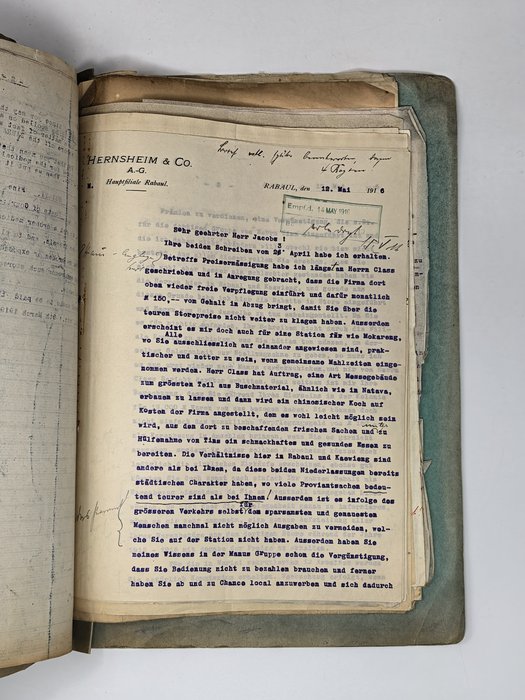 HERNSHEIM & CO.
A.-G.
M. Hauptfiliale Rabaul.
RABAUL, den 12. Mai 1916
Empfd. 14 MAY 1916
Sehr geehrter Herr Jacobs !
Ihre beiden Schreiben vom April habe ich erhalten.
Betreffs Preisermässigung habe ich längst an Herrn Class
geschrieben und in Anregung gebracht, dass die Firma dort
oben wieder freie Verpflegung einführt und dafür monatlich
M 150,-- vom Gehalt in Abzug bringt, damit Sie über die
teuren Storepreise nicht weiter zu klagen haben. Ausserdem
erscheint es mir doch auch für eine Station für wie Mokareng,
wo Sie Alle ausschliesslich auf einander angewiesen sind, prak-
tischer und netter zu sein, wenn gemeinsame Mahlzeiten einge-
nommen werden. Herr Class hat Auftrag, eine Art Messegebäude
zum grössten Teil aus Buschmaterial, ähnlich wie in Natava,
erbauen zu lassen und dann wird ein chinesischer Koch auf
Kosten der Firma angestellt, dem es wohl leicht möglich sein
wird, aus den dort zu beschaffenden frischen Sachen unter
Hülfenahme von Tins ein schmackhaftes und gesundes Essen zu
bereiten. Die Verhältnisse hier in Rabaul und Kaewieng sind
andere als bei Ihnen, da diese beiden Niederlassungen bereits
städtischen Charakter haben, wo viele Proviantsachen bedeu-
tend teurer sind als bei Ihnen! Ausserdem ist es infolge des
grösseren Verkehrs selbst für den sparsamsten und genauesten
Menschen manchmal nicht möglich Ausgaben zu vermeiden, wel-
che Sie auf der Station nicht haben. Ausserdem haben Sie
meines Wissens in der Manus Gruppe schon die Vergünstigung,
dass Sie Bedienung nicht zu bezahlen brauchen und ferner
haben Sie ab und zu Chance local anzuwerben und sich dadurch